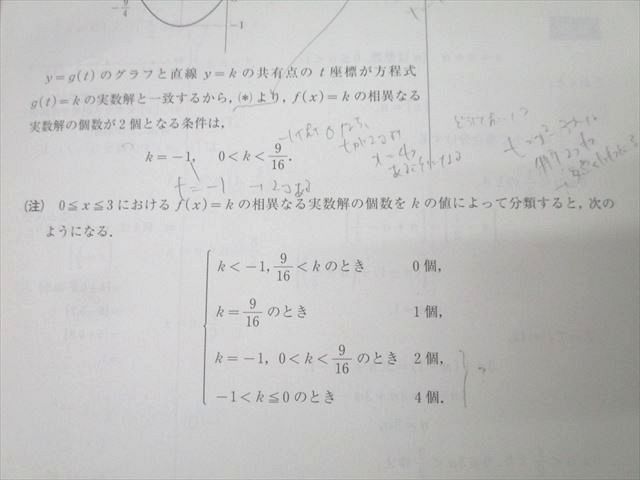 -9/4
-1
y=g(t)のグラフと直線 y=k の共有点の t 座標が方程式
g(t)=k の実数解と一致するから，(*)より，f(x)=k の相異なる
実数解の個数が2個となる条件は，
k=-1, 0<k<9/16.
t=-1 →2コある
(注) 0≦x≦3における f(x)=k の相異なる実数解の個数を k の値によって分類すると，次の
ようになる．
k<-1, 9/16<k のとき 0個，
k=9/16 のとき 1個，
k=-1, 0<k<9/16 のとき 2個，
-1<k≦0 のとき 4個．